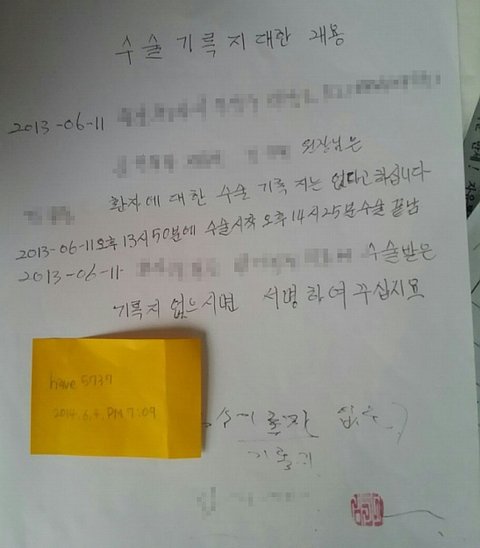 수술 기록 지 대한 내용
2013-06-11
원장님은
환자에 대한 수술 기록 지는 없다고 하십니다
2013-06-11 오후 13시 50분에 수술시작 오후 14시 25분 수술 끝남
2013-06-11- 수술받은
기록지 없으시면 서명하여 주십시요
have 5737
2014.6.4. PM 7:09
기록지